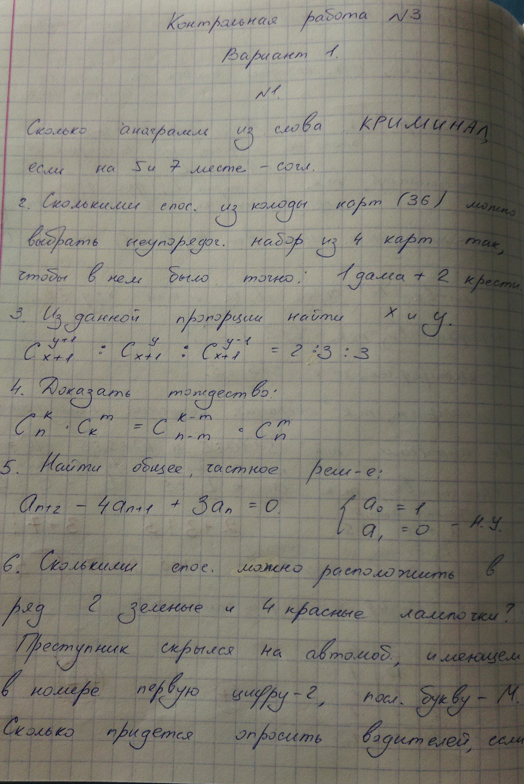 Контрольная работа N3
Вариант 1.
N1.
Сколько анаграмм из слова КРИМИНАЛ,
если на 5 и 7 месте - согл.
2. Сколькими спос. из колоды карт (36) можно
выбрать неупорядоч. набор из 4 карт так,
чтобы в нем было точно: 1 дама + 2 крести
3. Из данной пропорции найти x и y.
C_{x+1}^{y+1} : C_{x+1}^{y} : C_{x+1}^{y-1} = 2 : 3 : 3
4. Доказать тождество:
C_n^k · C_k^m = C_{n-m}^{k-m} · C_n^m
5. Найти общее, частное реш-е:
a_{n+2} - 4a_{n+1} + 3a_n = 0 { a_0 = 1
a_1 = 0 - н.у.
6. Сколькими спос. можно расположить в
ряд 2 зеленые и 4 красные лампочки?
Преступник скрылся на автомоб., имеющем
в номере первую цифру-2, посл. букву - М.
Сколько придется опросить водителей, если